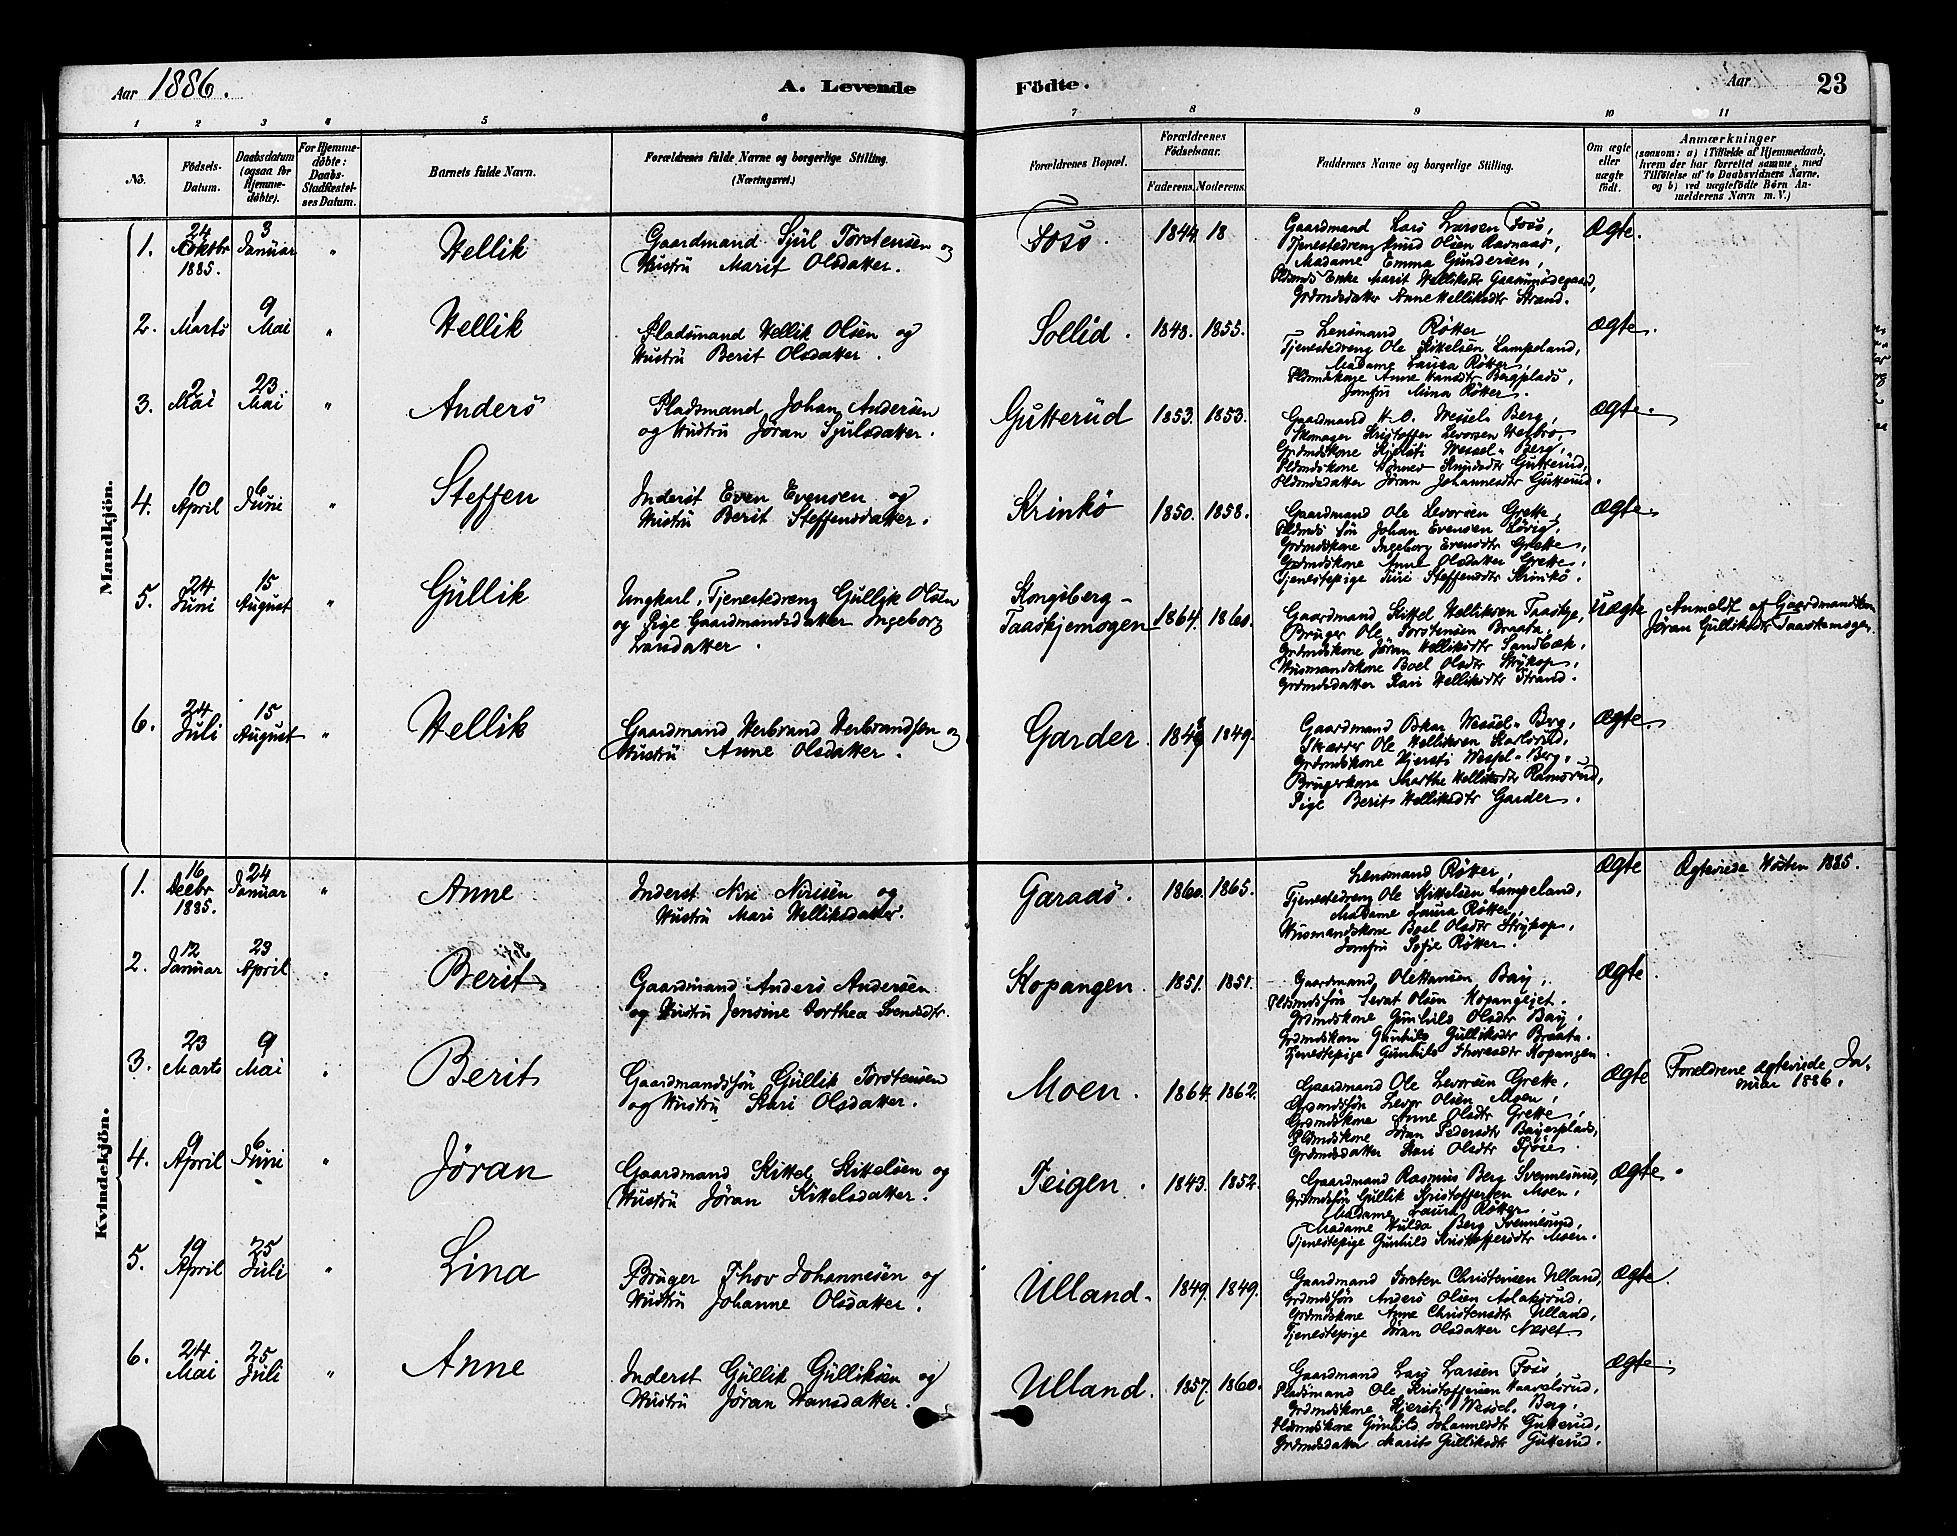 Aar 1886.
A. Levende
Födte.
Aar
23
1
2
3
4
5
6
7
8
9
10
11
No.
Födsels-
Datum.
Daabsdatum
(ogsaa for
Hjemme-
döbte).
For Hjemme-
döbte:
Daabs-
Stadfæstel-
ses Datum.
Barnets fulde Navn.
Forældrenes fulde Navne og borgerlige Stilling.
(Næringsvei.)
Forældrenes Bopæl.
Forældrenes
Födselsaar.
Faderens.
Moderens.
Faddernes Navne og borgerlige Stilling.
Om ægte
eller
uægte
födt.
Anmærkninger
(saasom: a) i Tilfælde af Hjemmedaab,
hvem der har forrettet samme, med
Tilföielse af to Daabsvidners Navne,
og b) ved uægtefödte Börn An-
melderens Navn m. V.)
Mandkjön.
1.
24
Oktobr
1885.
3
Januar
"
Hellik
Gaardmand Sjul Torstensen og
Hustru Marit Olsdatter.
Foss.
1844.
18
Gaardmand Lars Larsen Foss,
Tjenestedreng Knud Olsen Ravnaas,
Madame Emma Gundersen,
Pldmds Enke Marit Helliksdtr
Grdmdsdatter Anne Helliksdtr Strand.
Ægte.
2.
1
Marts
9
Mai
"
Hellik
Pladsmand Hellik Olsen og
Hustru Berit Olsdatter.
Sollid.
1848.
1855.
Lensmand Røkker
Tjenestedreng Ole Kittelsen Lampeland,
Madame Laura Røkker,
Pldmdskone Anne Hansdtr Bergplads,
Jomfru Mina Røkker.
Ægte.
3.
2
Mai
23
Mai
"
Anders
Pladsmand Johan Andersen
og Hustru Jøran Sjulsdatter.
Gutterud
1853.
1853.
Gaardmand H. O. Wessel-Berg,
Skomager Kristoffer Levorsen Herbro,
Grdmdskone Kjersti Wessel-Berg,
Pldmdskone Knudsdtr Gutterud,
Pldmdsdatter Jøran Johannesdtr Gutterud.
Ægte.
4.
10
April
6
Juni
"
Steffen
Inderst Even Evensen og
Hustru Berit Steffensdatter.
Krinkø
1850.
1858.
Gaardmand Ole Levorsen Grette,
Pldmds Søn Johan Evensen
Grdmdskone Ingeborg Evensdtr Grette,
Grdmdskone Anne Olsdatter Grette,
Tjenestepige Turi Steffensdtr Krinkø.
Ægte.
5.
24
Juni
15
August
"
Gullik
Ungkarl, Tjenestedreng Gullik Olsen
og Pige Gaardmandsdatter Ingeborg
Larsdatter.
Kongsberg-
Taaskjemogen
1864.
1860.
Gaardmand Kittel Helliksen
Bruger Ole Torstensen Braata,
Grdmdskone Jøran Helliksdtr Sandbæk,
Husmandskone Boel Olsdtr Strykop,
Grdmdsdatter Kari Helliksdtr Strand.
Uægte
Anmeldt af Gaardmandskone
Jøran Gulliksdtr Taaskemogen.
6.
24
Juli
15
August
"
Hellik
Gaardmand Herbrand Herbrandsen og
Hustru Anne Olsdatter.
Garder.
1849.
Gaardmand Wessel-Brg,
Ole Helliksen
Grdmdskone Kjersti Wessel-Berg,
Brugerkone Marthe Helliksdtr
Pige Berit Helliksdtr Garder.
Ægte.
Kvindekjön.
1.
16
Decbr
1885.
24
Januar
"
Anne
Inderst Niri Nirisen og
Hustru Mari Helliksdatter.
Garaas.
1860.
1865.
Lensmand Røkker,
Tjenestedreng Ole Kittelsen Lampeland,
Madame Laura Røkker,
Husmandskone Boel Olsdtr Strykop,
Jomfru Sofie Røkker.
Ægte
Ægteviede Høsten 1885.
2.
12
Januar
23
April
Berit
Gaardmand Anders Andersen
og Hustru Jensine Dorthea Svendsdtr.
Kopangen.
1851.
1851.
Gaardmand Ole Hansen Bay,
Pldsmdssøn Olsen Kopangeiet.
Grdmdskone Gunhild Olsdtr Bay,
Grdmdskone Gunhild Gulliksdtr Braata.
Tjenestepige Gunhild Thoresdtr Kopangen
Ægte.
3.
23
Marts
9
Mai
"
Berit
Gaardmandssøn Gullik Torstensen
og Hustru Kari Olsdatter.
Moen.
1864.
1862.
Gaardmand Ole Levorsen Grette,
Grdmdssøn Levor Olsen Moen,
Grdmdskone Anne Olsdtr Grette,
Pldmdskone Jøran Pedersdtr Bayerplads,
Grdmdsdatter Kari Olsdtr
Ægte
Forældrene ægteviede Ja-
nuar 1886.
4.
9
April
6
Juni
"
Jøran
Gaardmand Kittel Kittelsen og
Hustru Jøran Kittelsdatter.
Teigen.
1843.
1852.
Gaardmand Rasmus Berg Svennesund,
Grdmdssøn Gullik Kristoffersen Moen,
Madame Laura Røkker,
Madame Hulda Berg Svennesund,
Tjenestepige Gunhild Kristoffersdtr Moen.
Ægte.
5.
19
April
25
Juli
"
Lina
Bruger Thov Johannesen og
Hustru Johanne Olsdatter.
Ulland.
1849.
1849.
Gaardmand Torsten Christensen Ulland,
Grdmdssøn Anders Olsen Aslaksrud,
Grdmdskone Anne Christensdtr Ulland,
Tjenestepige Jøran Olsdatter Næset
Ægte.
6.
24
Mai
25
Juli
"
Anne
Inderst Gullik Gulliksen og
Hustru Jøran Hansdatter.
Ulland.
1857.
1860.
Gaardmand Lars Larsen Foss,
Pladsmand Ole Kristoffersen
Grdmdskone Kjersti Wessel-Berg,
Pldmdskone Gunhild Johannesdtr Gutterud,
Grdmdsdatter Marit Gulliksdtr Gutterud.
Ægte.